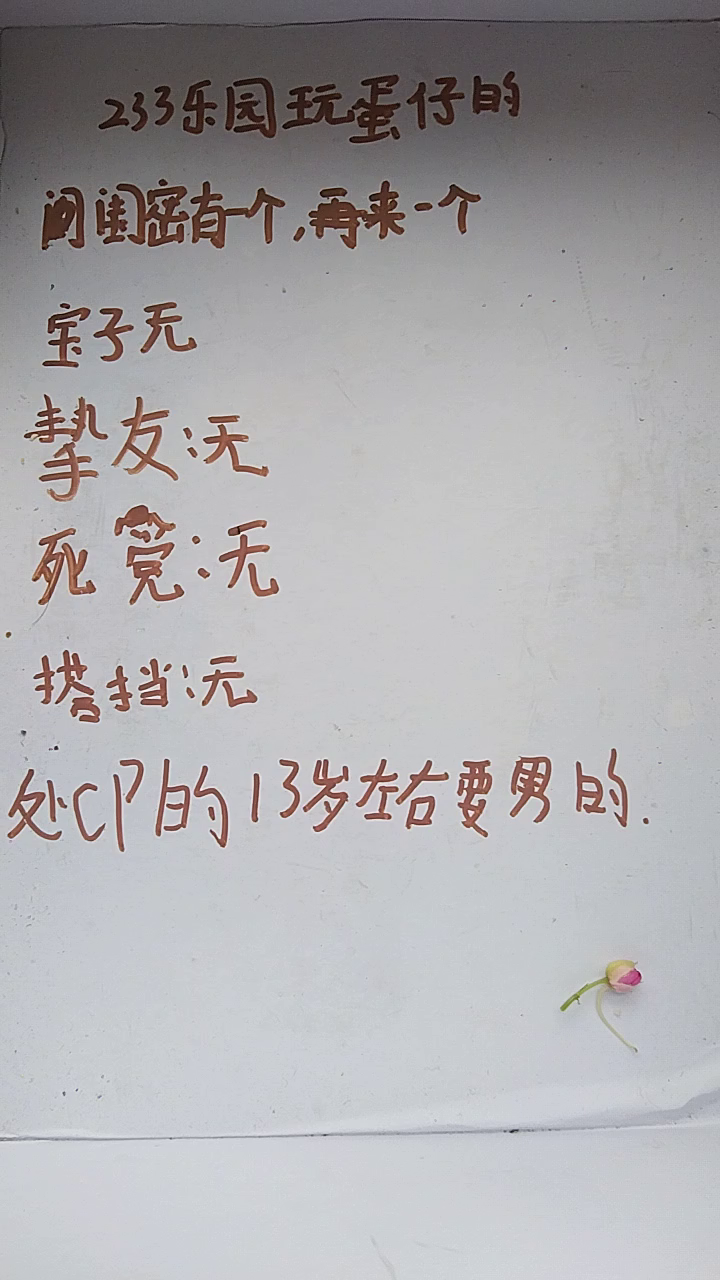 233乐园玩蛋仔的
闺密有一个,再来一个
宝子无
挚友:无
死党:无
搭挡:无
处CP的13岁左右要男的.